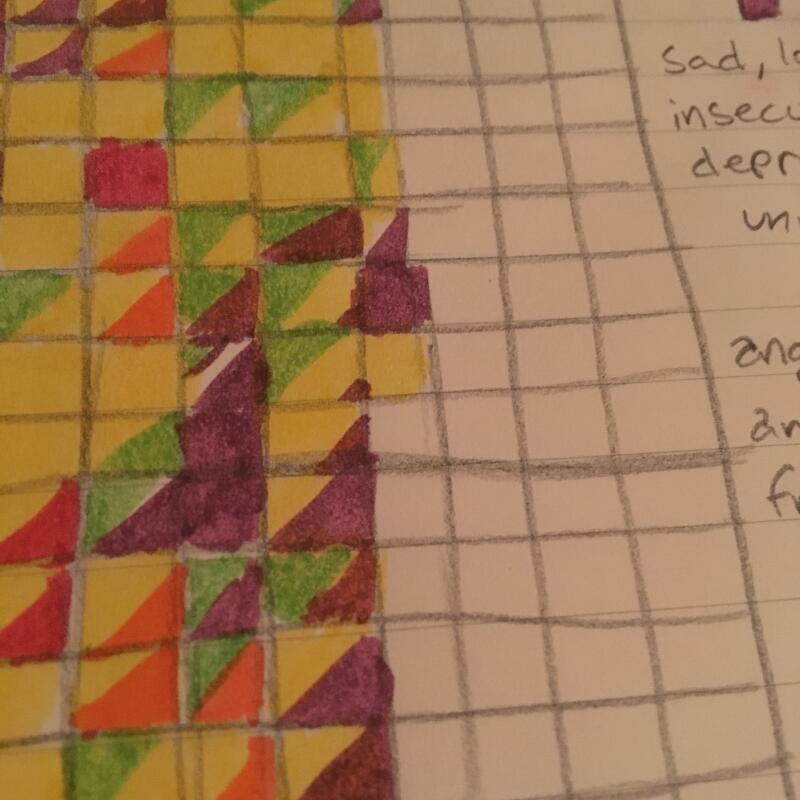 sad, lo
insecu
depr
un
ang
an
fu